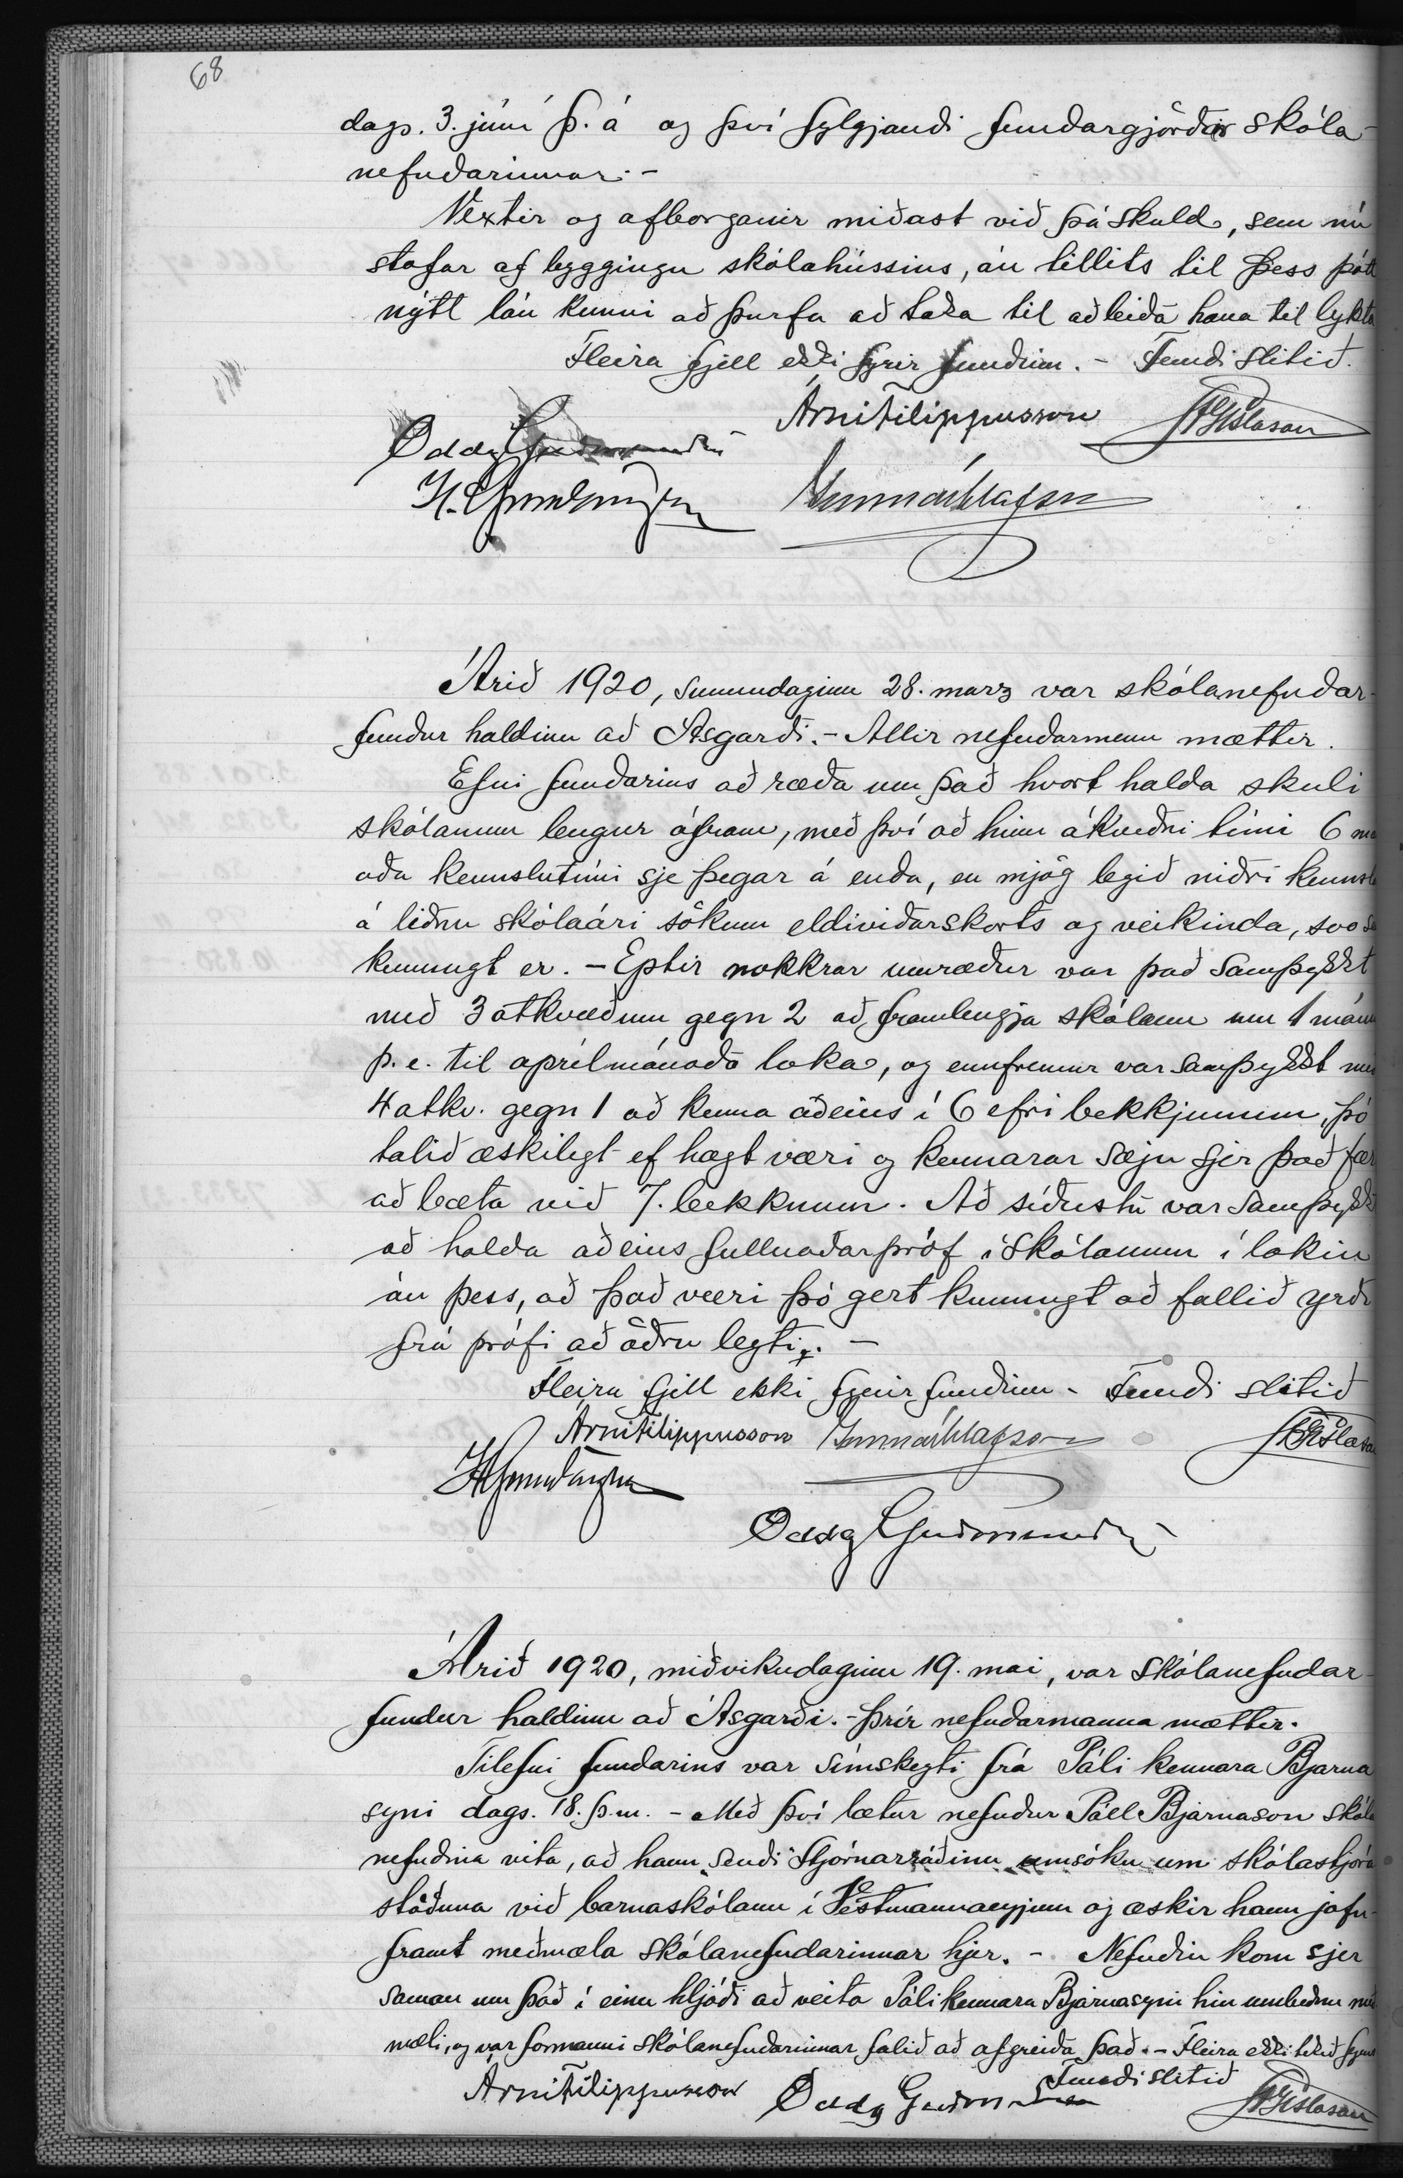 68
dags. 3. júní þ. á og því fylgjandi fundargjörðir skóla-
nefndarinnar. -
Vextir og afborganir miðast við þá skuld, sem nú
stafar af byggingu skólahússins, án tillits til þess þótt
nýtt lán kunni að þurfa að taka til að leiða hana til lykta
Fleira fjell ekki fyrir fundinn. - Fundi slitið.
Árni Filippusson JPGíslason
Oddg Guðmundss
H. Gunnlaugsson Gunnar Ólafsson
Árið 1920, sunnudaginn 28. marz var skólanefndar-
fundur haldinn að Ásgarði. - Allir nefndarmenn mættir.
Efni fundarins að ræða um það hvort halda skuli
skólanum lengur áfram, með því að hinn ákveðni tími 6 má
aða kennslutími sje þegar á enda, en mjög legið niðri kennsla
á liðnu skólaári sökum eldiviðarskorts og veikinda, svo se
kunnugt er. - Eptir nokkrar umræður var það samþykkt
með 3 atkvæðum gegn 2 að framlengja skólann um 1 mánu
þ. e. til aprílmánaða loka, og ennfremur var samþykkt með
4 atkv. gegn 1 að kenna aðeins í 6 efri bekkjunum, þó
talið æskilegt ef hægt væri og kennarar sæju sjer það fær
að bæta við 7. bekknum. Að síðustu var samþykkt
að halda aðeins fullnaðarpróf í skólanum í lokin
án þess, að það væri þó gert kunnugt að fallið yrði
frá prófi að öðru leyti. -
Fleira fjell ekki fyrir fundinn - Fundi slitið
Árni Filippusson Gunnar Ólafsson JPGíslason
H Gunnlaugsson
Oddg Guðmundss
Árið 1920, miðvikudaginn 19. mai, var skólanefndar-
fundur haldinn að Ásgarði. - Þrír nefndarmanna mættir.
Tilefni fundarins var símskeyti frá Páli kennara Bjarna
syni dags. 18. þ.m. - Með því lætur nefndur Páll Bjarnason skóla
nefndina vita, að hann sendi Stjórnarráðinu umsókn um skólastjóra
stöðuna við barnaskólann í Vestmannaeyjum og æskir hann jafn-
framt meðmæla skólanefndarinnar hjer. - Nefndin kom sjer
saman um það í einu hljóði að veita Páli kennara Bjarnasyni hin umbeðnu með
mæli, og var formanni skólanefndarinnar falið að afgreiða það. - Fleira ekki tekið fyrir
Fundi slitið
Árni Filippusson Oddg Guðmundss JPGíslason